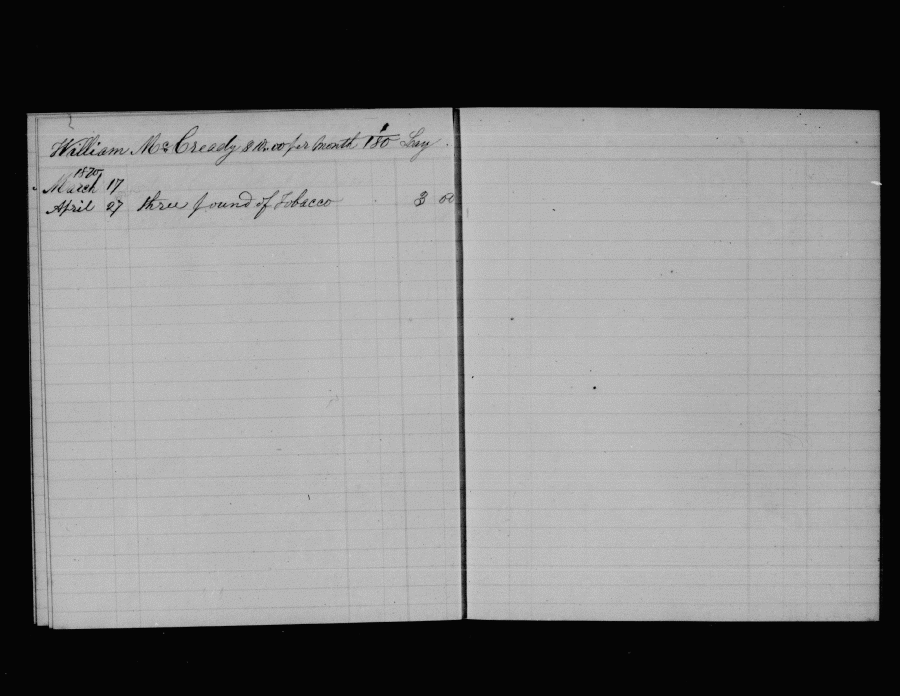 William McCready per month 1/180 Lay
1870
March 17
April 27 three pound of Tobacco 3 00